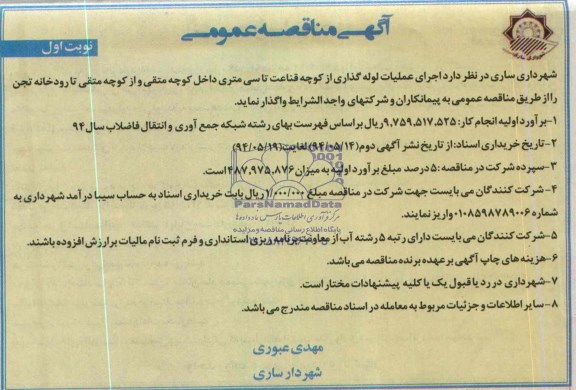 آگهی مناقصه عمومی
نوبت اول
شهرداری ساری در نظر دارد اجرای عملیات لوله گذاری از کوچه قناعت تا سی متری داخل کوچه متقی و از کوچه متقی تا رودخانه تجن
را از طریق مناقصه عمومی به پیمانکاران و شرکتهای واجد الشرایط واگذار نماید.
۱-برآورد اولیه انجام کار: ۹,۷۵۹,۵۱۷,۵۲۵ ریال براساس فهرست بهای رشته شبکه جمع آوری و انتقال فاضلاب سال ۹۴
۲-تاریخ خریداری اسناد: از تاریخ نشر آگهی دوم (۹۴/۰۵/۱۴) لغایت (۹۴/۰۵/۱۹)
۳-سپرده شرکت در مناقصه: ۵ درصد مبلغ برآورد اولیه به میزان ۴۸۷,۹۷۵,۸۷۶ است.
۴-شرکت کنندگان می بایست جهت شرکت در مناقصه مبلغ ۱/۰۰۰/۰۰۰ ریال بابت خریداری اسناد به حساب سیبا درآمد شهرداری به
شماره ۰۱۰۸۵۹۸۷۸۹۰۰۶ واریز نمایند.
ParsNamadData
پایگاه اطلاع رسانی مناقصه و مزایده
۵-شرکت کنندگان می بایست دارای رتبه ۵ رشته آب از معاونت برنامه ریزی استانداری و فرم ثبت نام مالیات بر ارزش افزوده باشند.
۶-هزینه های چاپ آگهی بر عهده برنده مناقصه می باشد.
۷-شهرداری در رد یا قبول یک یا کلیه پیشنهادات مختار است.
۸-سایر اطلاعات و جزئیات مربوط به معامله در اسناد مناقصه مندرج می باشد.
مهدی عبوری
شهردار ساری